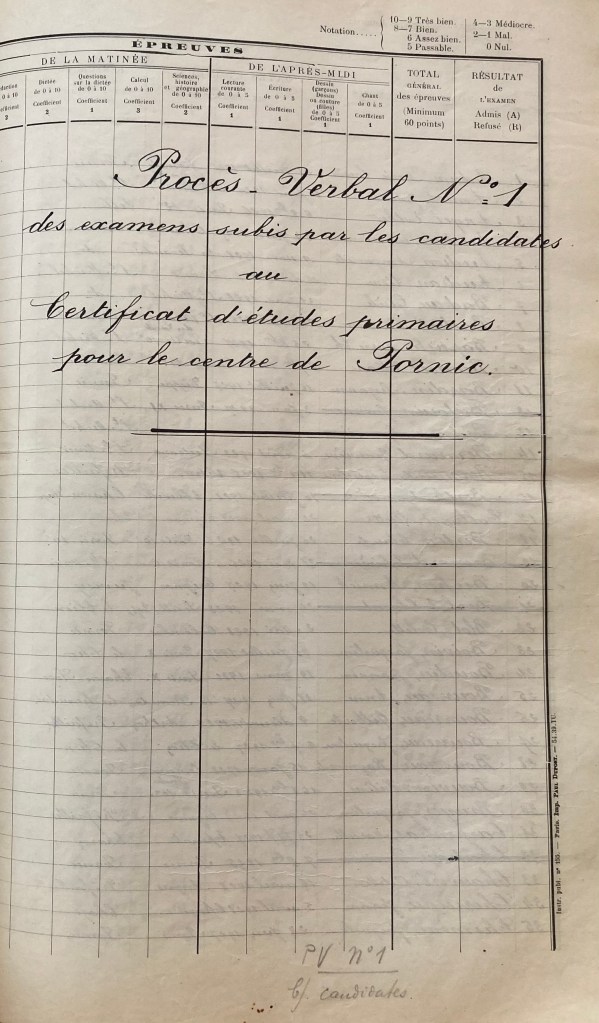 Notation.....
10—9 Très bien.
8—7 Bien.
6 Assez bien.
5 Passable.
4—3 Médiocre.
2—1 Mal.
0 Nul.
ÉPREUVES
DE LA MATINÉE
DE L'APRÈS-MIDI
TOTAL
GÉNÉRAL
des épreuves
(Minimum
60 points)
RÉSULTAT
de
L'EXAMEN
Admis (A)
Refusé (R)
0 à 10
2
Dictée
de 0 à 10
Coefficient
2
Questions
sur la dictée
de 0 à 10
Coefficient
1
Calcul
de 0 à 10
Coefficient
3
Sciences,
histoire
et géographie
de 0 à 10
Coefficient
2
Lecture
courante
de 0 à 5
Coefficient
1
Écriture
de 0 à 5
Coefficient
1
Dessin
(garçons)
Dessin
ou couture
(filles)
de 0 à 5
Coefficient
1
Chant
de 0 à 5
Coefficient
1
Procès-Verbal N° 1
des examens subis par les candidates
au
Certificat d'études primaires
pour le centre de Pornic.
Instr. publ. n° 120. — Paris. Imp. Paul Dupont. —
PV N° 1
candidates.